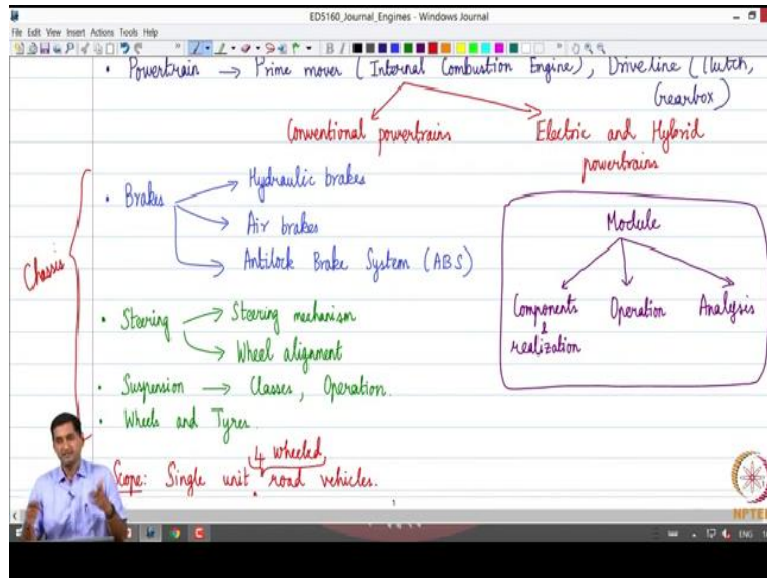 ED5160_Journal_Engines - Windows Journal
File Edit View Insert Actions Tools Help
• Powertrain → Prime mover (Internal Combustion Engine), Driveline (Clutch,
Gearbox)
Conventional powertrains
Electric and Hybrid
powertrains
Chassis
• Brakes → Hydraulic brakes
→ Air brakes
→ Antilock Brake System (ABS)
• Steering → Steering mechanism
→ Wheel alignment
• Suspension → Classes, Operation.
• Wheels and Tyres.
Scope: Single unit 4 wheeled road vehicles.
Module
Components
&
realization
Operation
Analysis
1
NPTEL
ENG